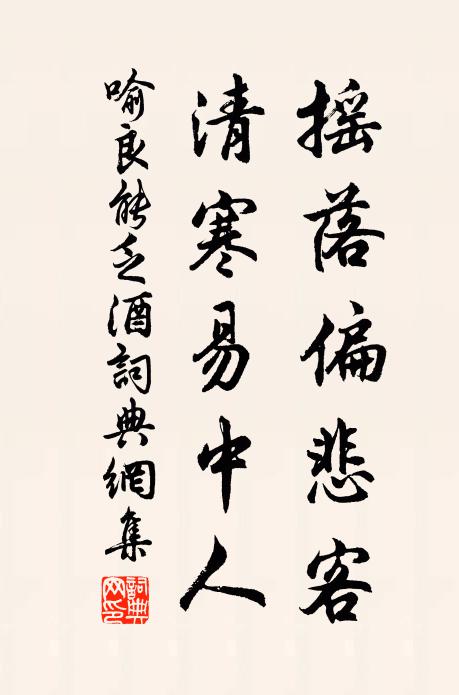 搖落偏悲客
清寒易中人
喻良能乏酒詞典網集
詞典網印